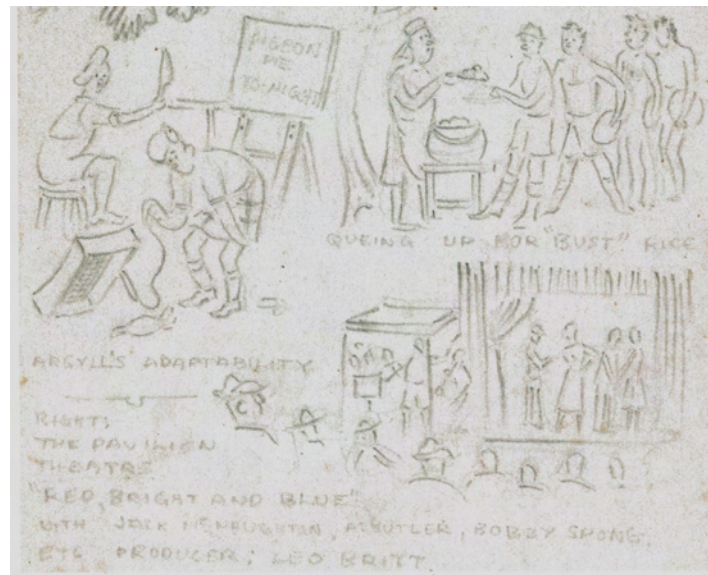 PIGEON
PIE
TO-NIGHT
QUEING UP FOR "BUST" RICE
ARGYLL'S ADAPTABILITY
RIGHT;
THE PAVILION
THEATRE
"RED, BRIGHT AND BLUE"
WITH JACK McNAUGHTON, A. BUTLER, BOBBY SPONG,
ETC PRODUCER; LEO BRITT